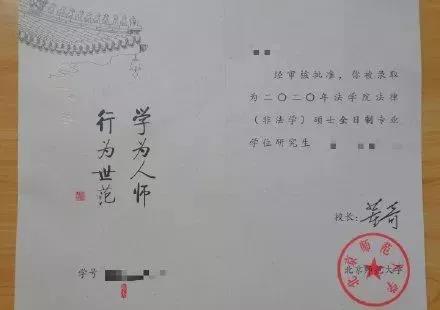 学为人师
行为世范
学号
经审核批准，你被录取
为二〇二〇年法学院法律
（非法学）硕士全日制专业
学位研究生
校长：董奇
北京师范大学
北京师范大学